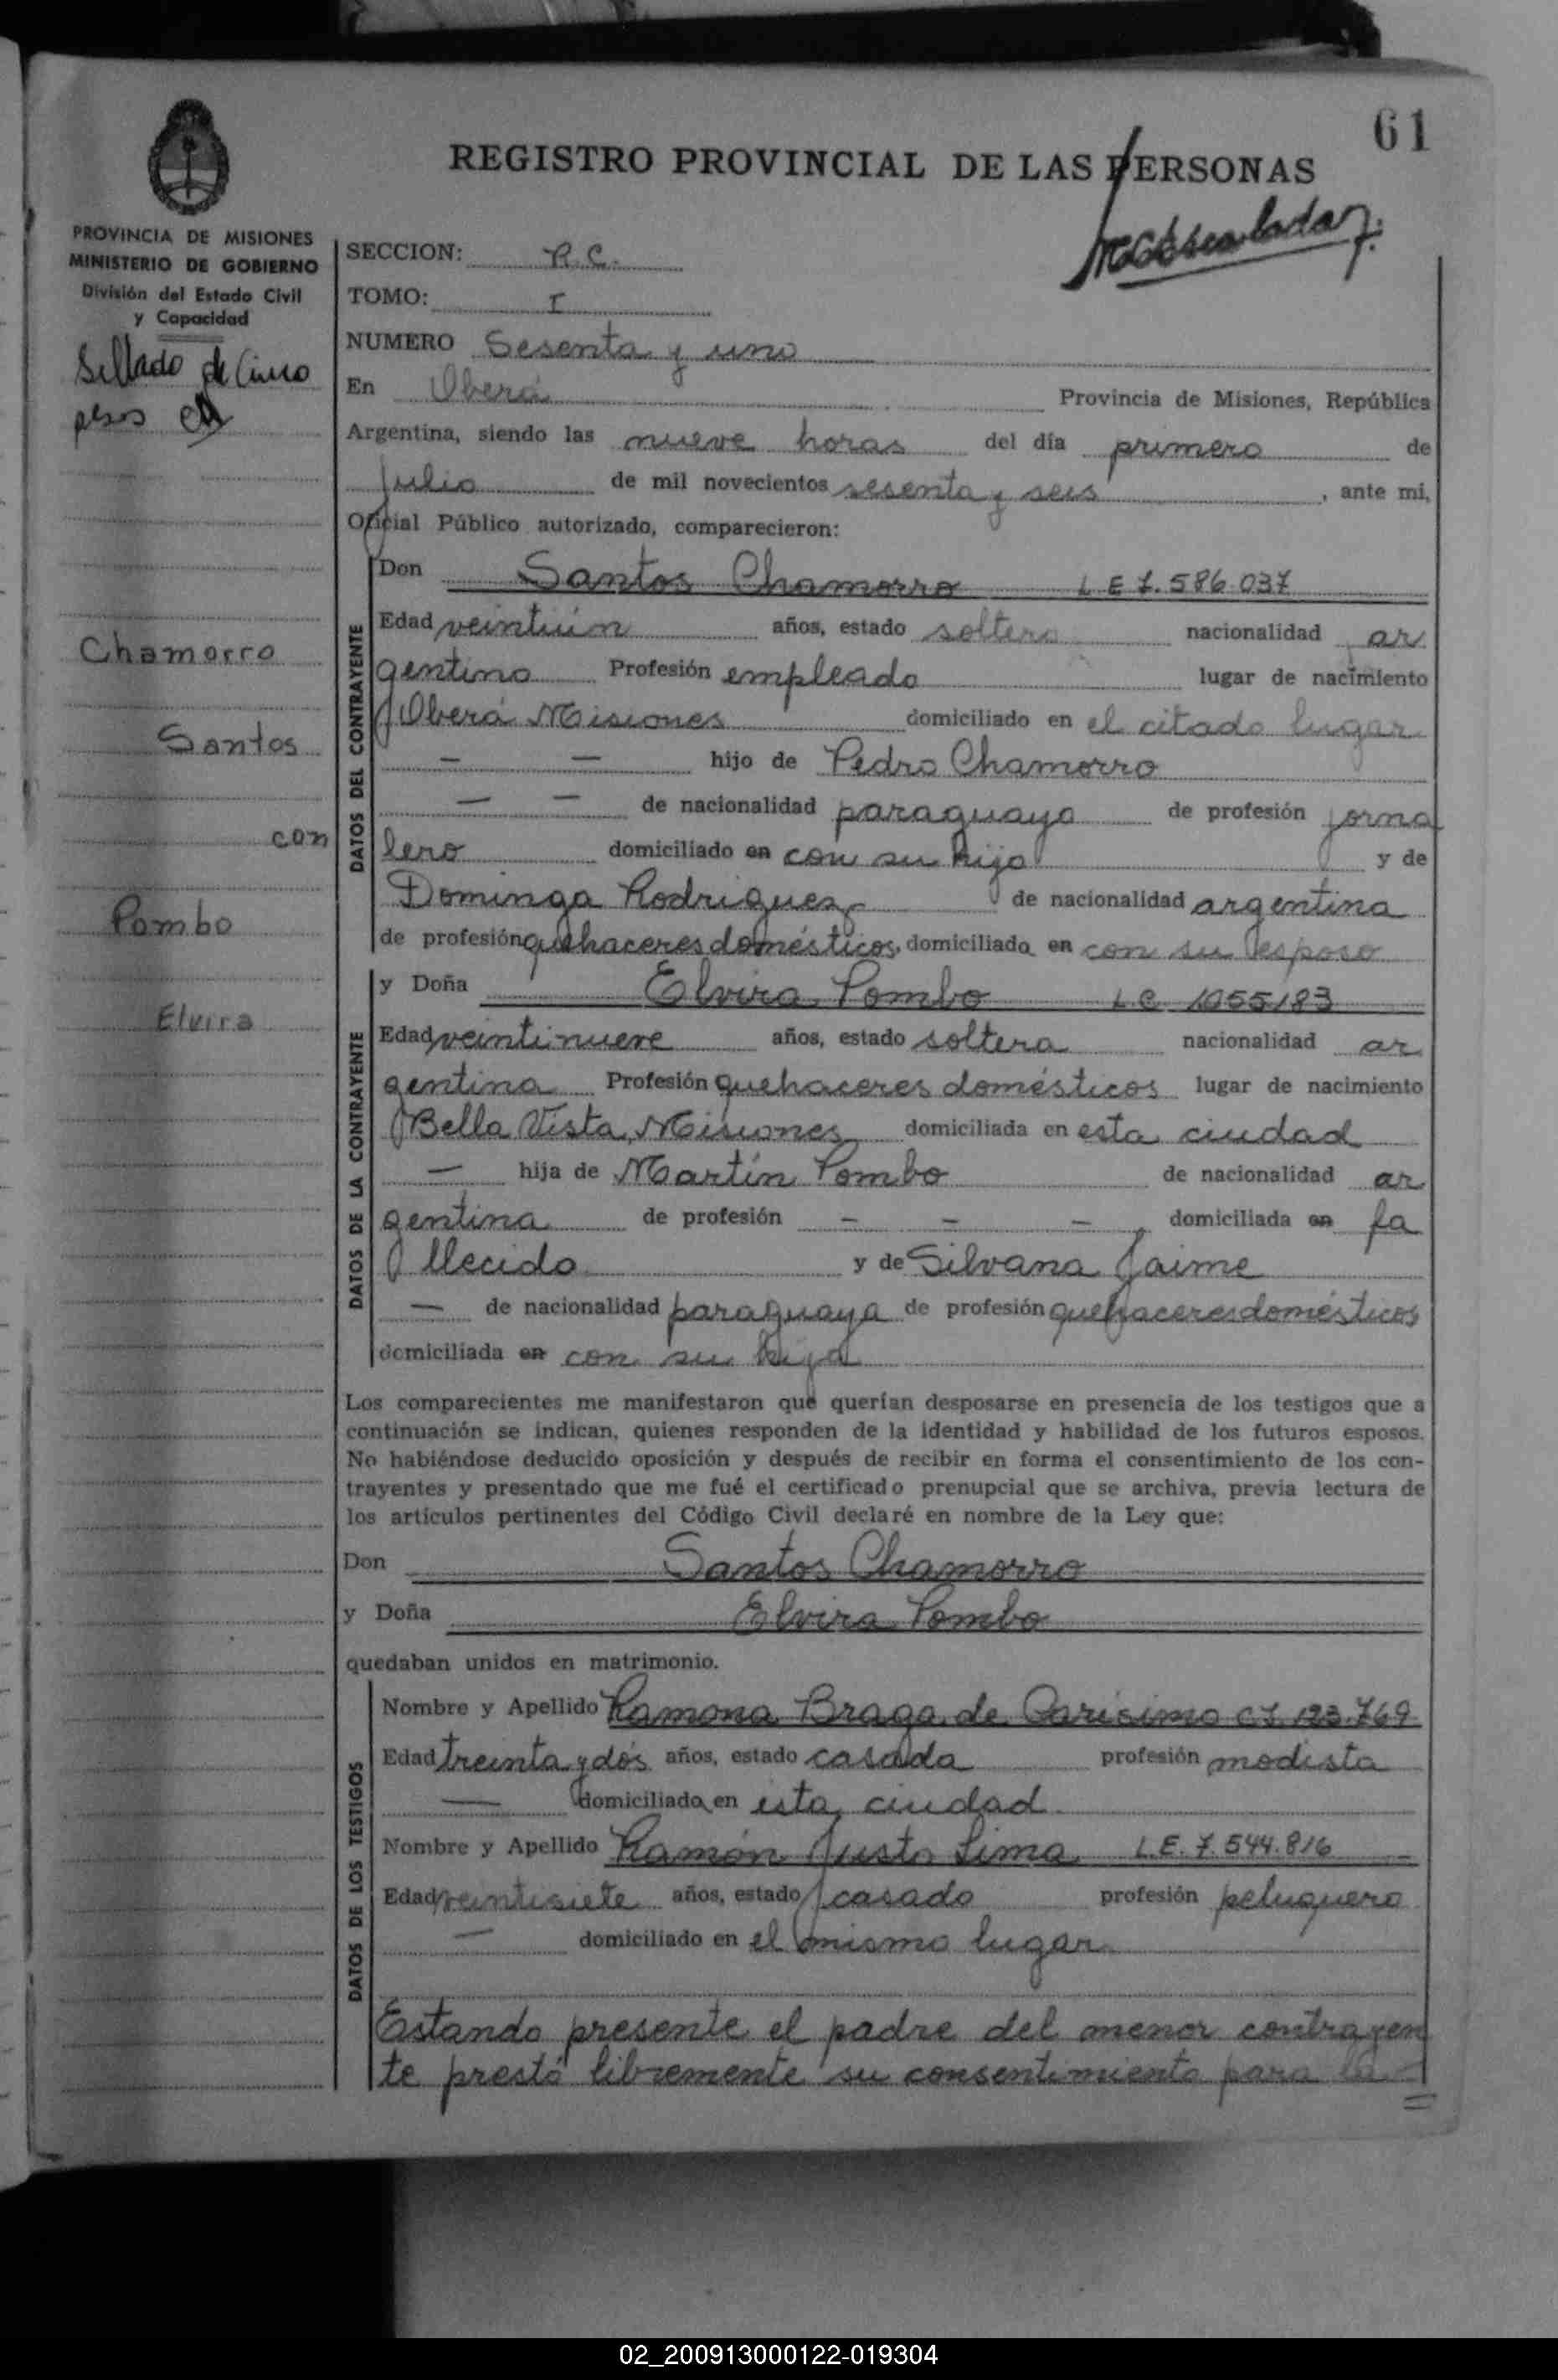 61
REGISTRO PROVINCIAL DE LAS PERSONAS
PROVINCIA DE MISIONES
MINISTERIO DE GOBIERNO
División del Estado Civil
y Capacidad
Sellado de Cinco
pesos
Chamorro
Santos
con
Pombo
Elvira
SECCION: R.C.
TOMO: I
NUMERO Sesenta y uno
En Oberá Provincia de Misiones, República
Argentina, siendo las nueve horas del día primero de
julio de mil novecientos sesenta y seis, ante mi,
Oficial Público autorizado, comparecieron:
DATOS DEL CONTRAYENTE
Don Santos Chamorro L E 7.586.037
Edad veintiún años, estado soltero nacionalidad ar
gentino Profesión empleado lugar de nacimiento
Oberá Misiones domiciliado en el citado lugar
— — hijo de Pedro Chamorro
— — de nacionalidad paraguaya de profesión jorna
lero domiciliado en con su hijo y de
Dominga Rodriguez de nacionalidad argentina
de profesión quehaceres domésticos, domiciliado en con su esposo
DATOS DE LA CONTRAYENTE
y Doña Elvira Pombo L.C. 1055183
Edad veintinueve años, estado soltera nacionalidad ar
gentina Profesión quehaceres domésticos lugar de nacimiento
Bella Vista, Misiones domiciliada en esta ciudad
— hija de Martín Pombo de nacionalidad ar
gentina de profesión — — — domiciliada en fa
llecido y de Silvana Jaime
— de nacionalidad paraguaya de profesión quehaceres domésticos
domiciliada en con su hija
Los comparecientes me manifestaron que querían desposarse en presencia de los testigos que a
continuación se indican, quienes responden de la identidad y habilidad de los futuros esposos.
No habiéndose deducido oposición y después de recibir en forma el consentimiento de los con-
trayentes y presentado que me fué el certificado prenupcial que se archiva, previa lectura de
los artículos pertinentes del Código Civil declaré en nombre de la Ley que:
Don Santos Chamorro
y Doña Elvira Pombo
quedaban unidos en matrimonio.
DATOS DE LOS TESTIGOS
Nombre y Apellido Ramona Braga de Carisimo C.I. 123.769
Edad treinta y dós años, estado casada profesión modista
— domiciliada en esta ciudad
Nombre y Apellido Ramón Justo Lima L.E. 7.544.816
Edad veintisiete años, estado casado profesión peluquero
— domiciliado en el mismo lugar
Estando presente el padre del menor contrayen
te prestó libremente su consentimiento para la
=
02_200913000122-019304